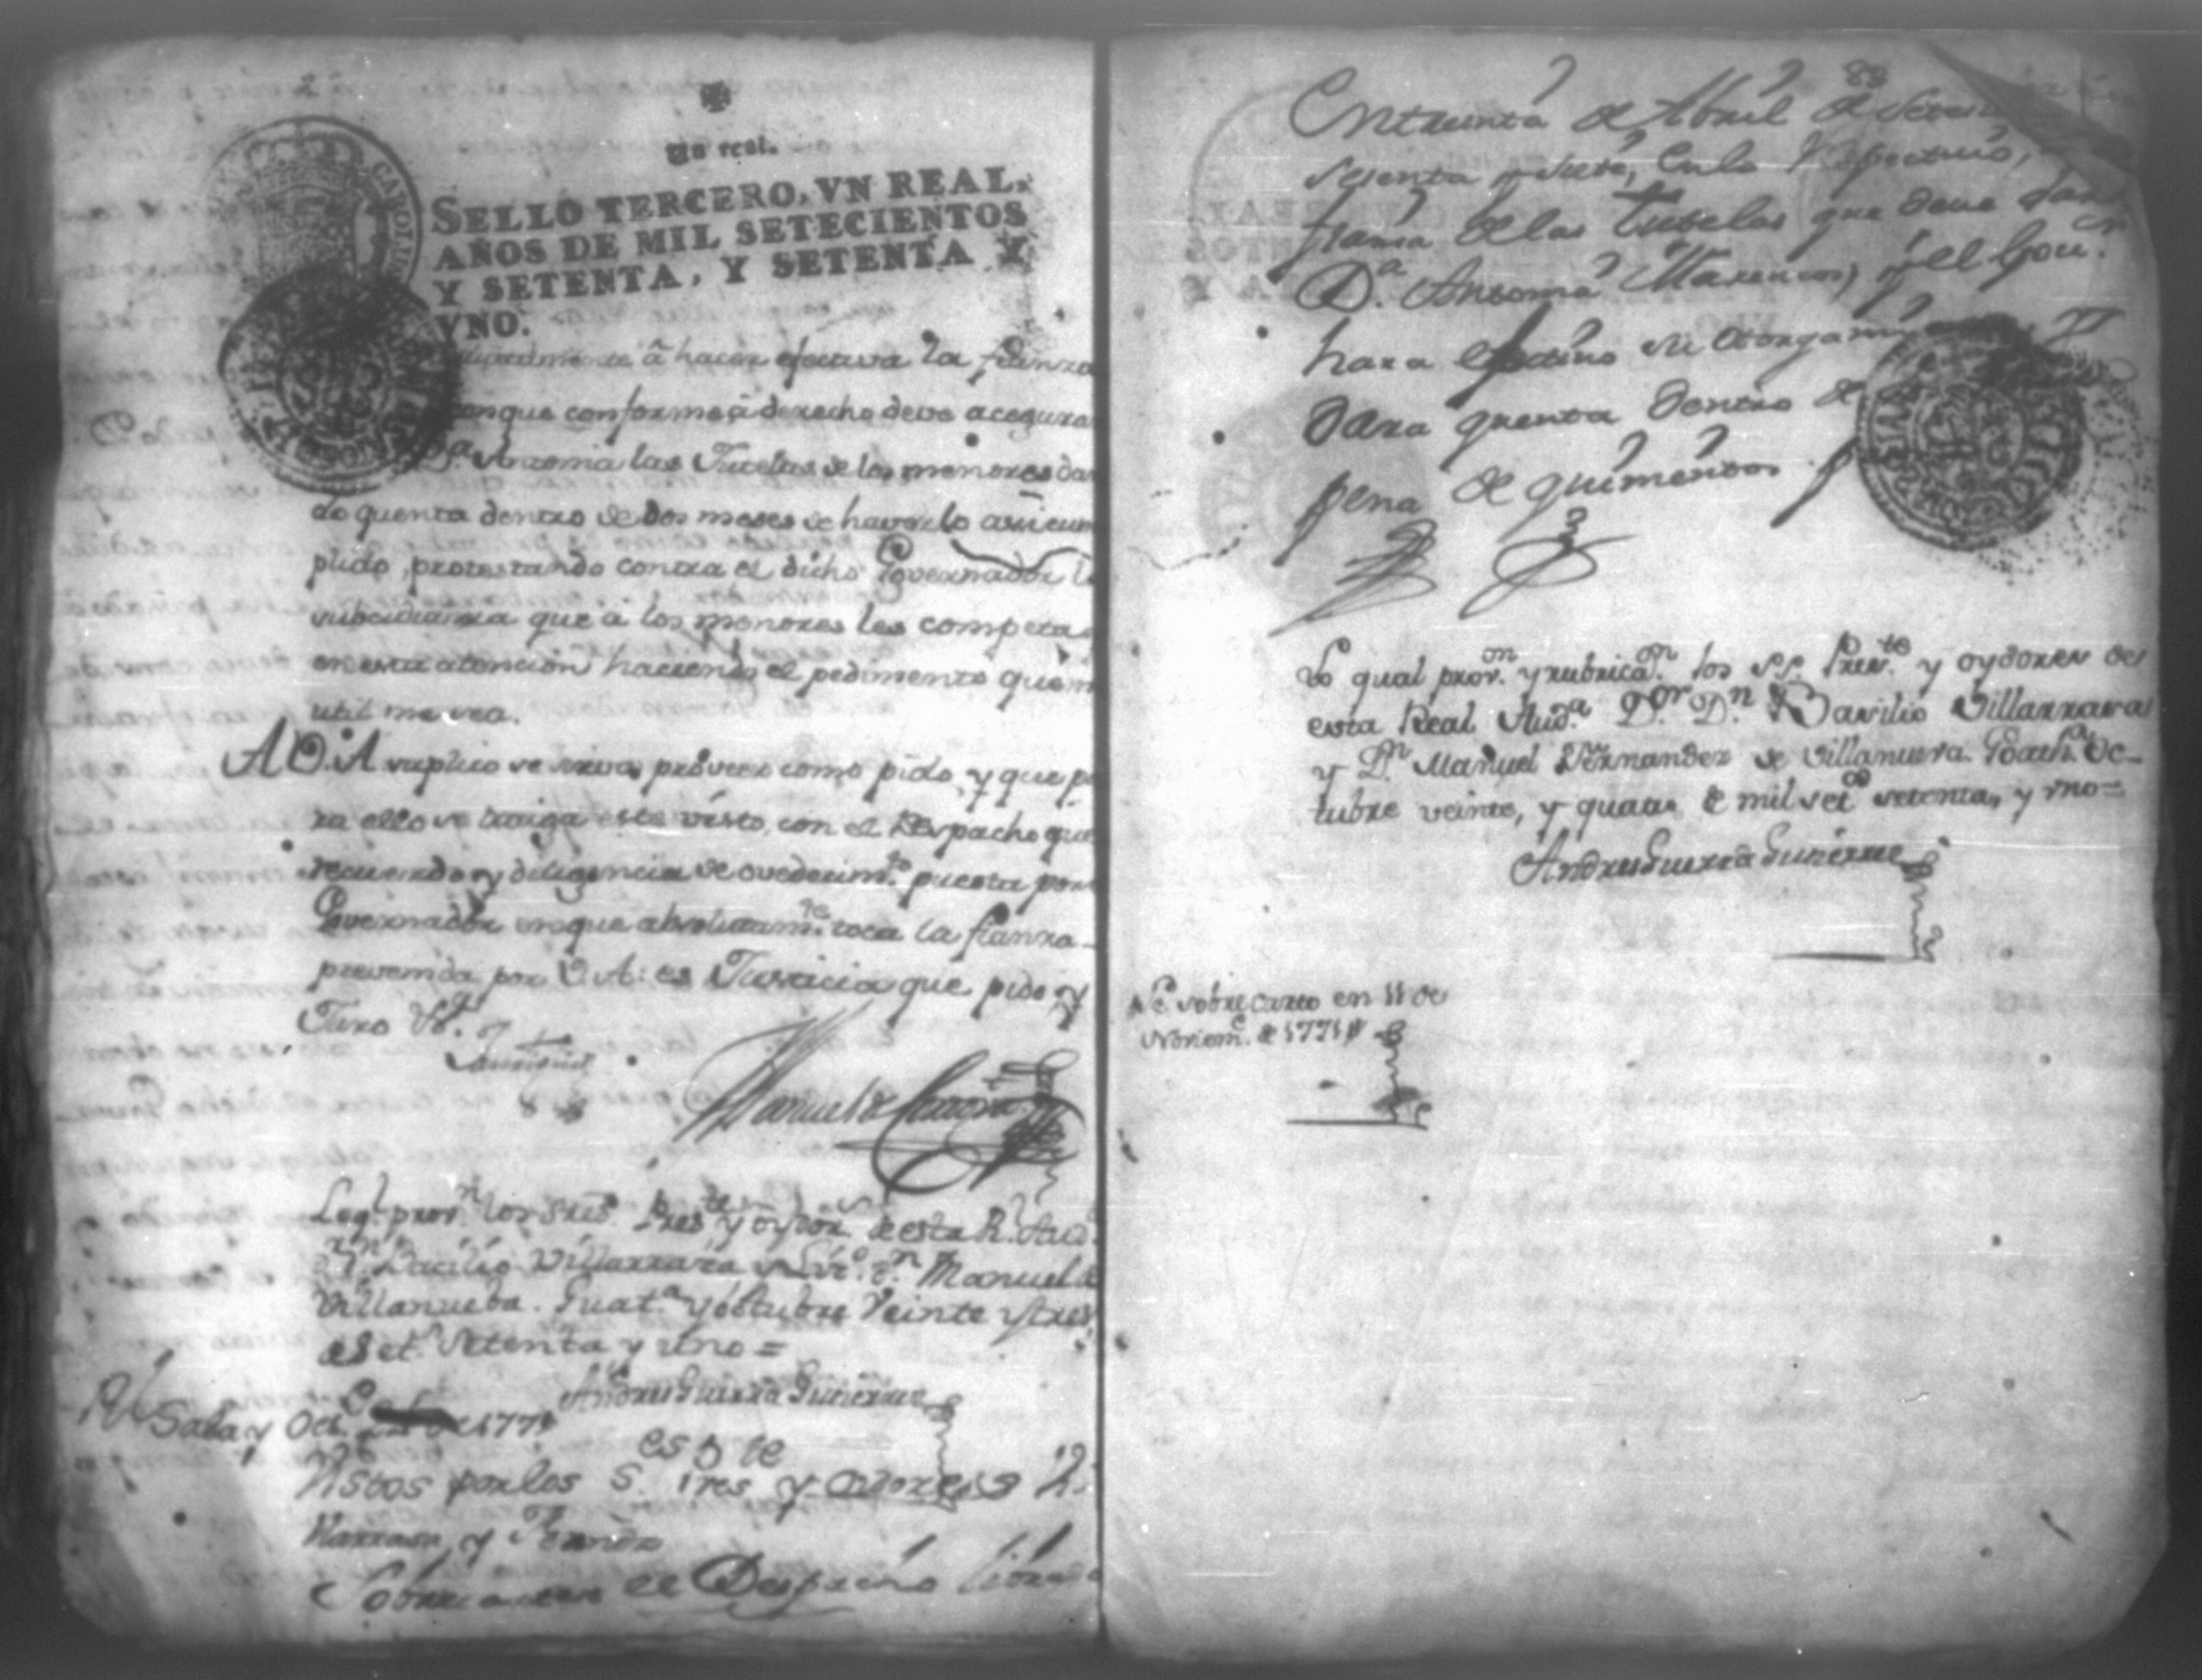 Un real.
SELLO TERCERO, VN REAL,
AÑOS DE MIL SETECIENTOS
Y SETENTA, Y SETENTA Y
VNO.
CAROLUS
â hacer efectiva la fianza
conque conforme â derecho deve acegura
D.ª Antonia las Tutelas de los menores dan
do quenta dentro de dos meses de haverlo asi cum
plido, protestando contra el dicho Governador la
subcidiaria que â los menores les competa
en esta atencion haciendo el pedimento que m
util me sea.
A V. A suplico se sirva proveer como pido, y que pa
ra ello se traiga este visto, con el Despacho que
recuerdo y diligencia de ovedecim.to puesta por
Governador en que absolutam.te toca la fianza
prevenida por V. A: es Justicia que pido, y
Juro V.ª
Manuel de
Lo q.l prov.n los S.res Pres.te y oydor.s de esta R.l Aud.ª
D.n Bacilio Villarrasa y D.n Manuel de
Villanueba. Guat.ª y Octubre Veinte y tres
de set.s setenta y uno =
Andres Guerra Gutierrez
R.l Sala y Oct.e de 1771
Vistos por los S.es Pres.te y Oidores
Villarrasa y Fernández
Sobrecartese el Despacho librado
88
En treinta de Abril de Setec
sesenta y siete, en lo Respectivo,
fianza de las Tutelas que deve dar
D.ª Antonia Marencos, y el Gov.or
hara efectivo su otorgamiento, y
dara quenta dentro de
pena de quinientos p
Lo qual prov.on y rubrica.on los SS. Presi.te y oydores de
esta Real Aud.ª D.or D.n Basilio Villarrasa
y D.n Manuel Fernandez de Villanueva. Goath.ª Oc-
tubre veinte, y quatro de mil set.os setenta, y vno=
Andres Guerra Gutierrez
Se sobrecarto en 11 de
Noviem.e de 1771